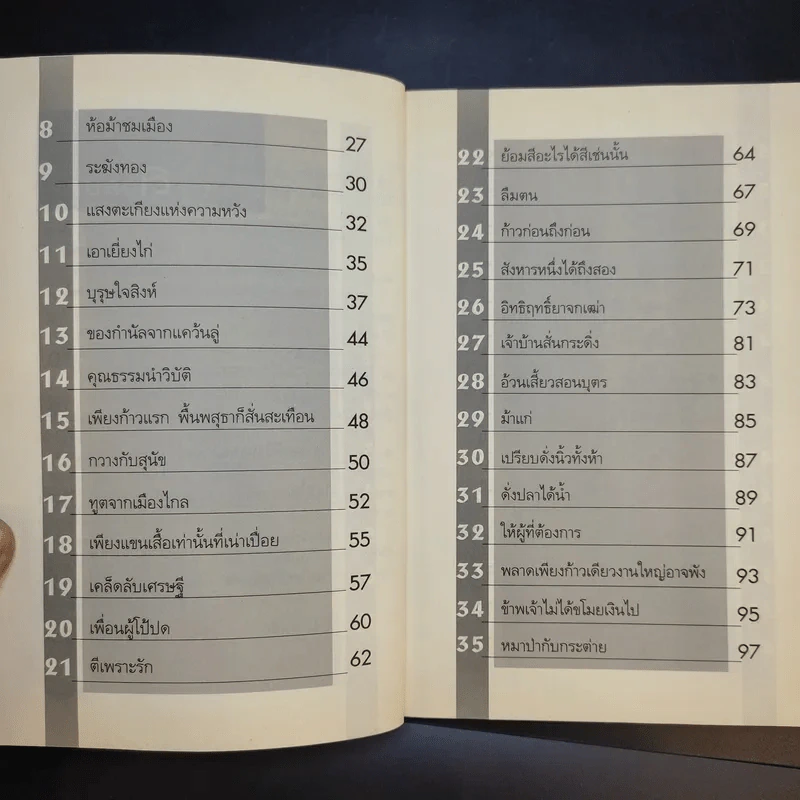 8 ห้อม้าชมเมือง 27
9 ระฆังทอง 30
10 แสงตะเกียงแห่งความหวัง 32
11 เอาเยี่ยงไก่ 35
12 บุรุษใจสิงห์ 37
13 ของกำนัลจากแคว้นลู่ 44
14 คุณธรรมนำวิบัติ 46
15 เพียงก้าวแรก พื้นพสุธาก็สั่นสะเทือน 48
16 กวางกับสุนัข 50
17 ทูตจากเมืองไกล 52
18 เพียงแขนเสื้อเท่านั้นที่เน่าเปื่อย 55
19 เคล็ดลับเศรษฐี 57
20 เพื่อนผู้โป้ปด 60
21 ตีเพราะรัก 62
22 ย้อมสีอะไรได้สีเช่นนั้น 64
23 ลืมตน 67
24 ก้าวก่อนถึงก่อน 69
25 สังหารหนึ่งได้ถึงสอง 71
26 อิทธิฤทธิ์ยาจกเฒ่า 73
27 เจ้าบ้านสั่นกระดิ่ง 81
28 อ้วนเสี้ยวสอนบุตร 83
29 ม้าแก่ 85
30 เปรียบดั่งนิ้วทั้งห้า 87
31 ดั่งปลาได้น้ำ 89
32 ให้ผู้ที่ต้องการ 91
33 พลาดเพียงก้าวเดียวงานใหญ่อาจพัง 93
34 ข้าพเจ้าไม่ได้ขโมยเงินไป 95
35 หมาป่ากับกระต่าย 97